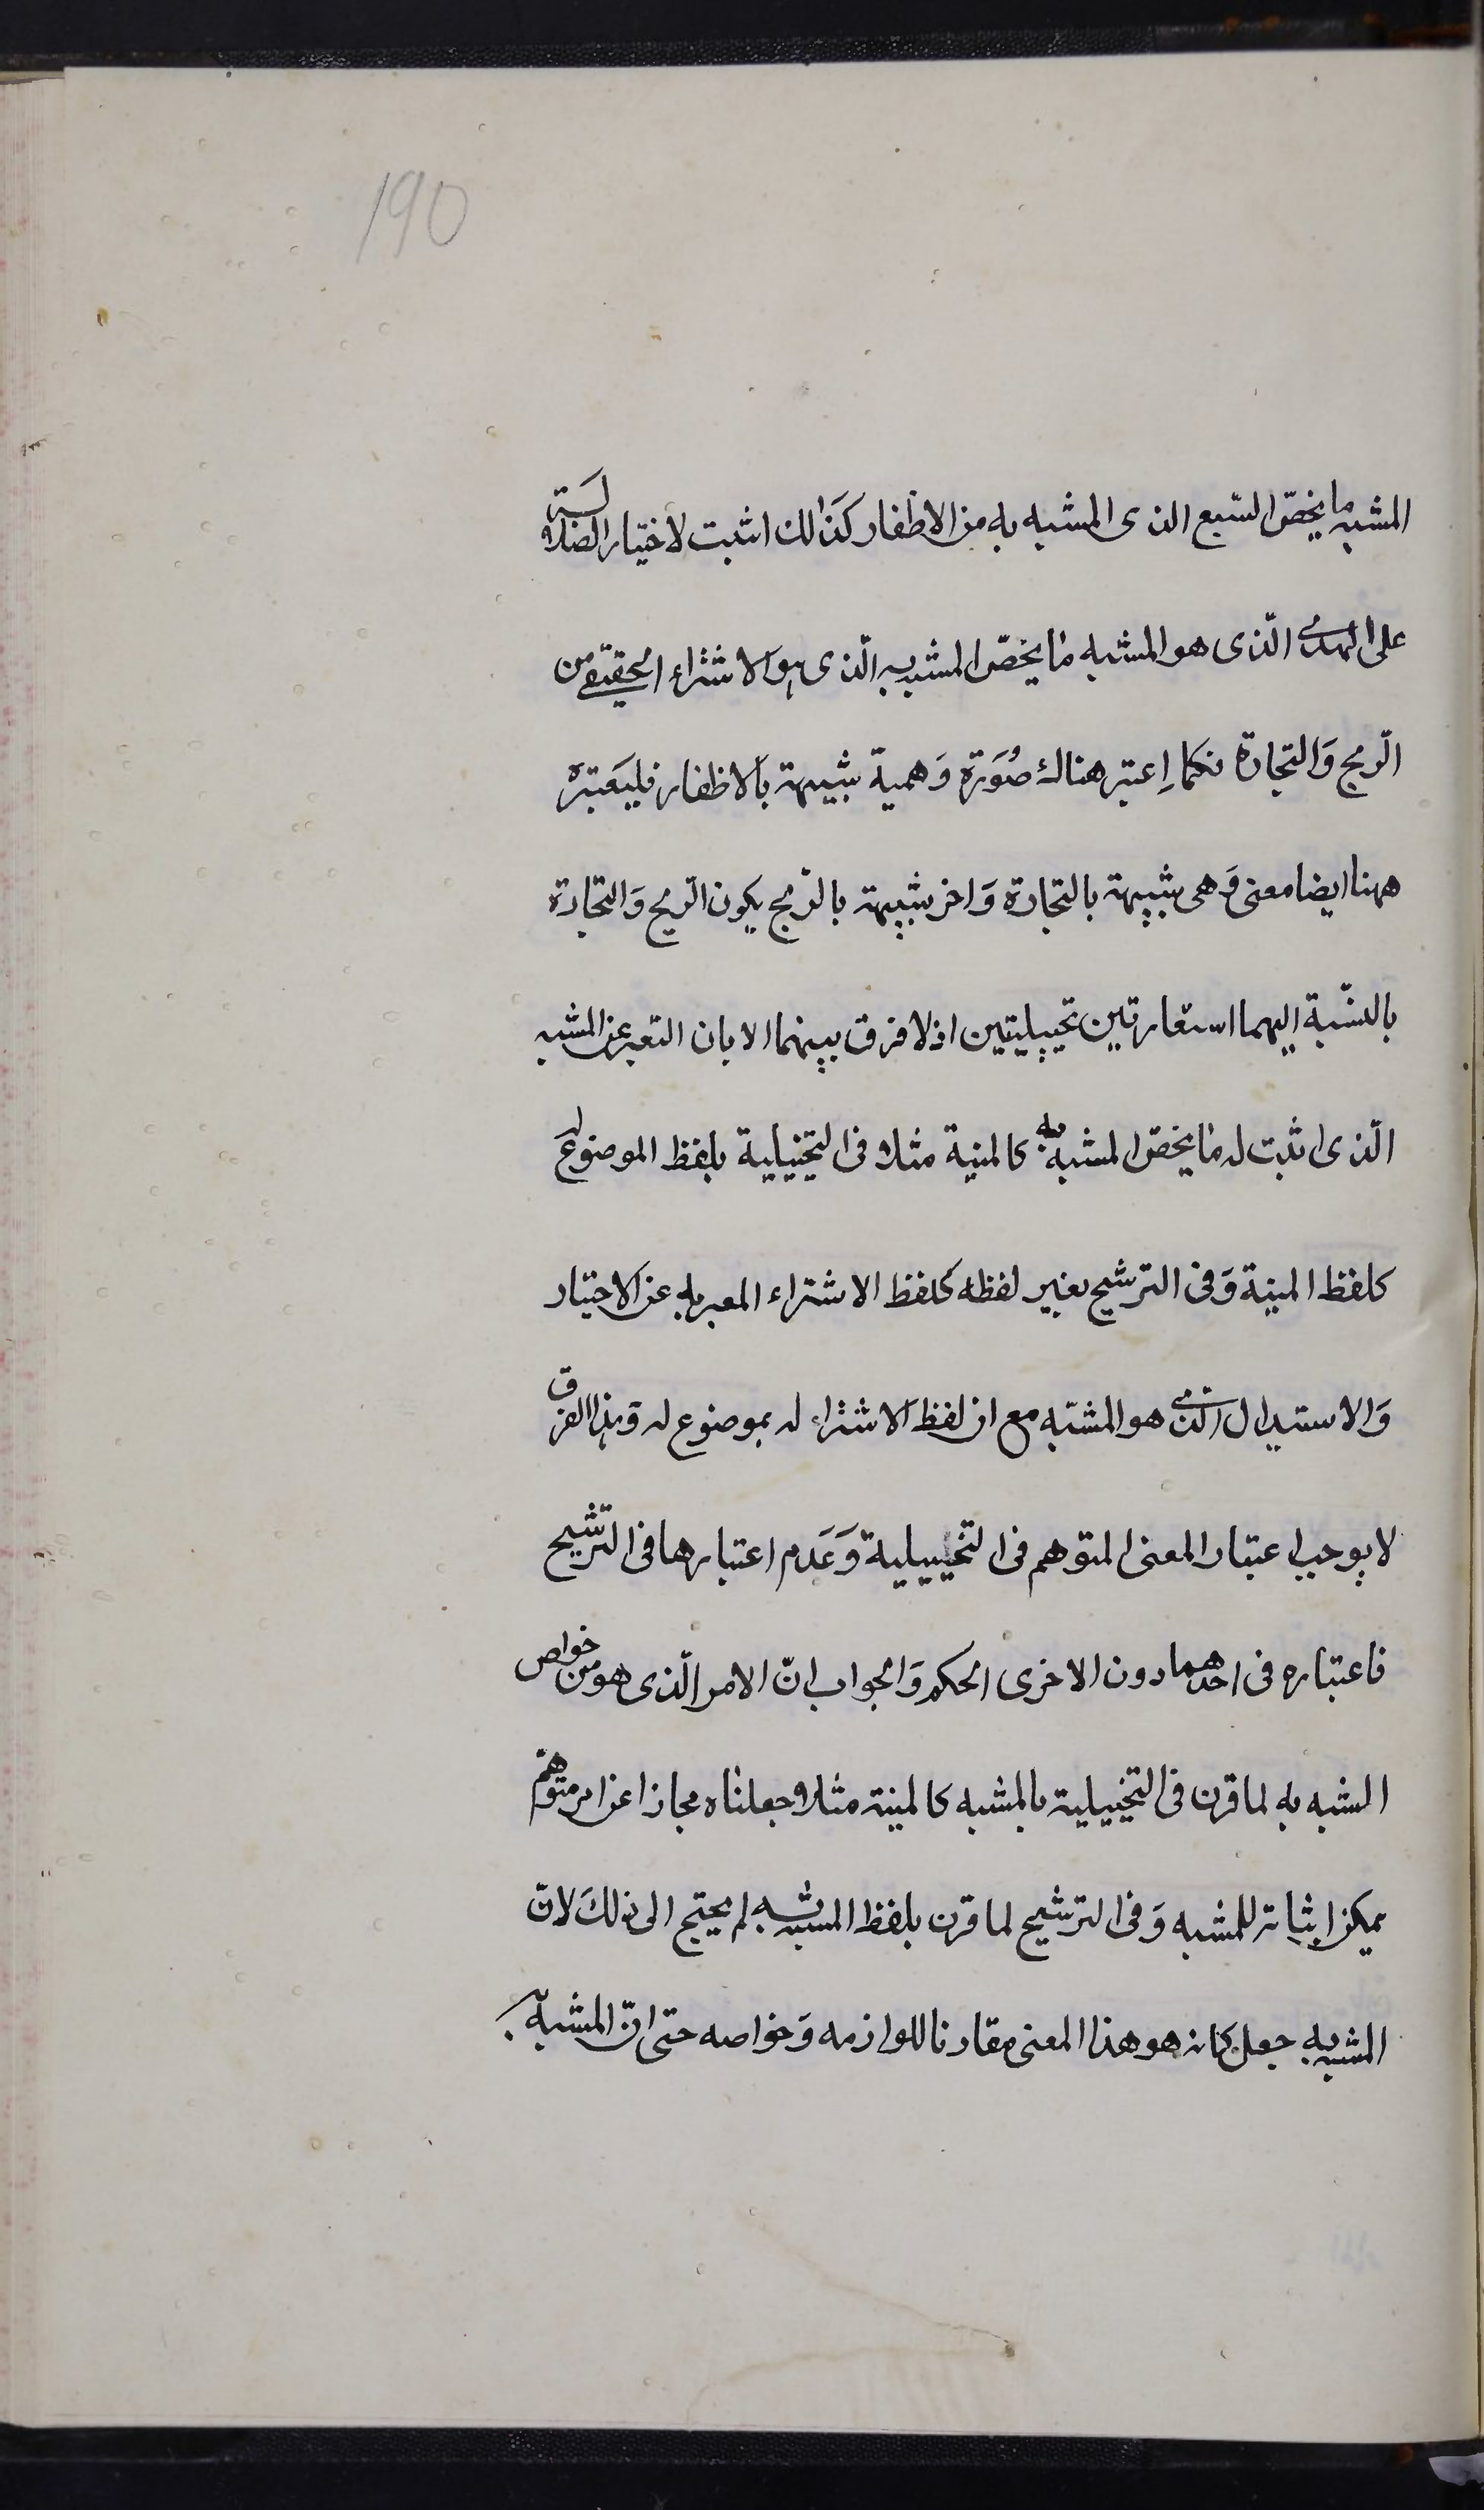 190
المشبه ما يخصّ السّبع الذى المشبه به من الاظفار كَذَالك اثبت لاختيار الضلالة
على الهدى الّذى هو المشبه مٰا يخصّ المشبه به الّذى هو الاشتراء الحقيقى من
الرّبح وَالتّجارة فكما اِعتبر هناك صُوَرة وَهمية شبيهة بَالاظفار فليَعتبر
ههنا ايضا معنى وَهمى شبيهة بالتجارة وَاخر شبيهة بالرّبح يكون الرّبح وَالتّجارة
بالنسّبة اليهما استعارتين تخييليتين اذ لا فرق بينهما الا بان التعبر عن المشبه
الّذى اثبت له مٰا يخصّ المشبه به كالمنية مثلا فى التخييلية بلفظ الموضوع له
كلفظ المنية وَفى الترشيح بغير لفظه كلفظ الاشتراء المعبر به عن الاختيار
وَالاستبدال الذى هو المشبّه مع ان لفظ الاشتراء له بموضوع له وَهذا الفرق
لا يوجب اعتبار المعنى المتوهم فى التخييلية وَعَدم اعتبارها فى الترشيح
فاعتباره فى احدهما دون الاخرى الحكم وَالجواب انّ الامر الّذى هو من خواص
المشبه به لما قرن فى التخييلية بالمشبه كالمنية مثلا وجعلناه مجازا عن امر متوهّم
يمكن اثباته للمشبه وَفى الترشيح لما قرن بلفظ المشبه به لم يحتج الى ذلكَ لانّ
المشبه به جعل كانه هو هذا المعنى مقارنا للوازمه وَخواصه حتى انّ المشبه به